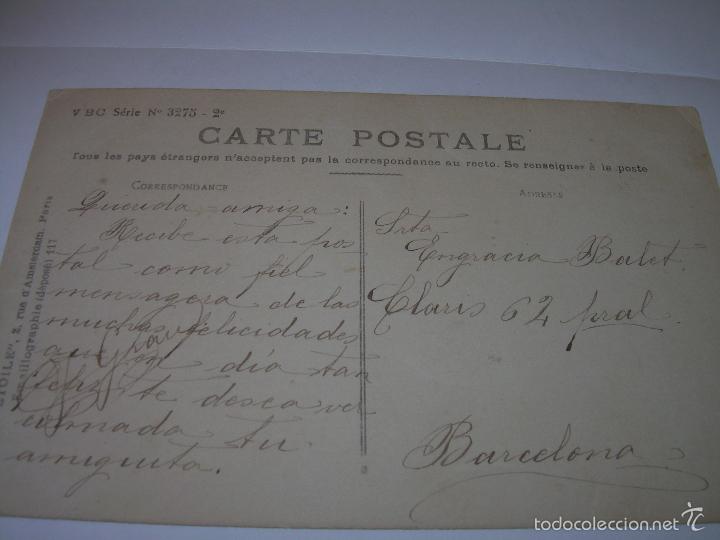 VBC Série Nº 3275 - 2e
CARTE POSTALE
Tous les pays étrangers n'acceptent pas la correspondance au recto. Se renseigner à la poste
CORRESPONDANCE
ADRESSE
Querida amiga:
Recibe esta pos
tal como fiel
mensagera de las
muchas felicidades
que en día tan
feliz te desea ver
colmada tu
amiguita.
Srta
Engracia Batet.
Claris 62 pral.
Barcelona
ETOILE", 2, rue d'Amsterdam, Paris
(déposé) 117
todocoleccion.net